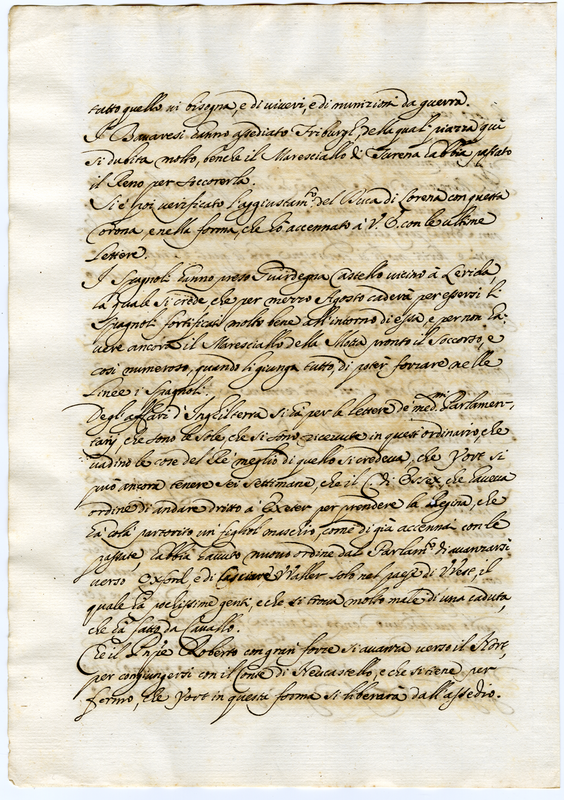 tutto quello vi bisogna, e di viveri, e di munizioni da guerra.
I Bavaresi hanno assediato Friburgh, della qual piazza qui
si dubita molto, benche il Maresciallo di Turena habbia passato
il Reno per soccorerla.
Si è poi verificato l'aggiustamto. del Duca di Lorena con questa
Corona, e nella forma, che hò accennato à V. E. con le ultime
lettere.
I Spagnoli hanno preso Castello vicino à Lerida
la quale si crede che per mezzo Agosto caderà per essersi li
Spagnoli fortificati molto bene all'intorno di essa, e per non ha-
vere ancora il Maresciallo della Motta pronto il soccorso, e
così numeroso, quando li giunga tutto, di poter forzare nelle
linee i Spagnoli.
Degli affari d'Inghilterra si hà per le lettere de medmi. Parlamen-
tarij che sono le sole, che si sono ricevute in quest'ordinario, che
vadino le cose del Rè meglio di quello si credeva, che Yort si
può ancora tenere sei settimane, che il C. di Essex, che haveva
ordine di andare dritto à Exeter per prendere la Regina, che
hà colà partorito un figliol maschio, come di già accennai con le
passate, habbia havuto nuovo ordine dal Parlamto. di avanzarsi
verso Oxonl, e di lasciare Waller solo nel paese di West, il
quale hà pochissime genti, e che si trova molto male di una caduta,
che hà fatto da Cavallo.
Che il Pnpe. Roberto con gran forze si avanza verso il Nort,
per congiungersi con il Conte di Neucastello, e che si tiene per
fermo, che Yort in questa forma si liberarà dall'assedio.